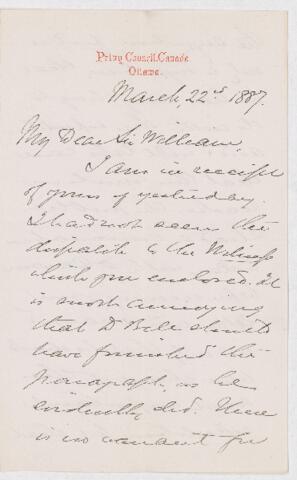 Privy Council, Canada
Ottawa.
March, 22nd 1887.
My Dear Sir William,
I am in receipt
of yours of yesterday.
I had not seen the
dispatch to the Witness
which you enclosed. It
is most annoying
that Dr Bell should
have furnished this
paragraph, as he
evidently did. There
is no warrant for